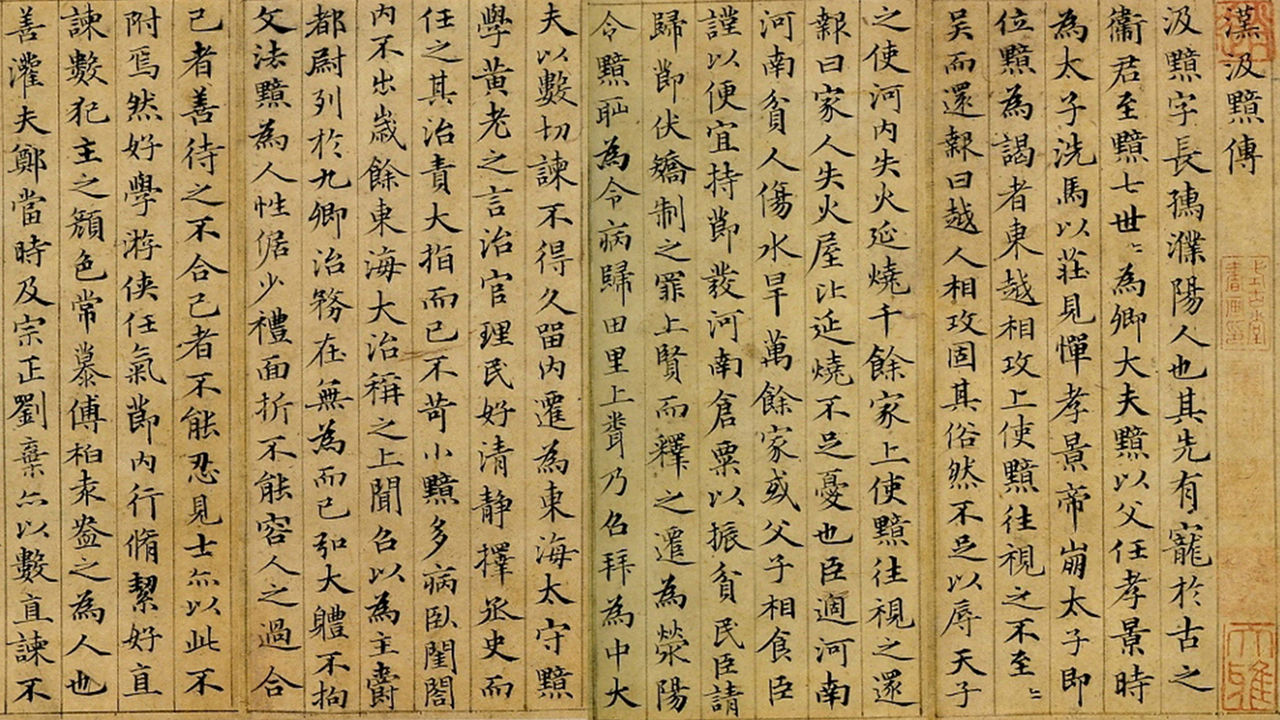 漢汲黯傳
汲黯字長孺濮陽人也其先有寵於古之
衞君至黯七世〻為卿大夫黯以父任孝景時
為太子洗馬以莊見憚孝景帝崩太子即
位黯為謁者東越相攻上使黯往視之不至〻
吳而還報曰越人相攻固其俗然不足以辱天子
之使河內失火延燒千餘家上使黯往視之還
報曰家人失火屋比延燒不足憂也臣過河南
河南貧人傷水旱萬餘家或父子相食臣
謹以便宜持節發河南倉粟以振貧民臣請
歸節伏矯制之罪上賢而釋之遷為滎陽
令黯恥為令病歸田里上聞乃召拜為中大
夫以數切諫不得久留內遷為東海太守黯
學黃老之言治官理民好清靜擇丞史而
任之其治責大指而已不苛小黯多病臥閨閤
內不出歲餘東海大治稱之上聞召以為主爵
都尉列於九卿治務在無為而已弘大軆不拘
文法黯為人性倨少禮面折不能容人之過合
己者善待之不合己者不能忍見士亦以此不
附焉然好學游俠任氣節內行脩絜好直
諫數犯主之顏色常慕傅柏袁盎之為人也
善灌夫鄭當時及宗正劉棄亦以數直諫不
大雅